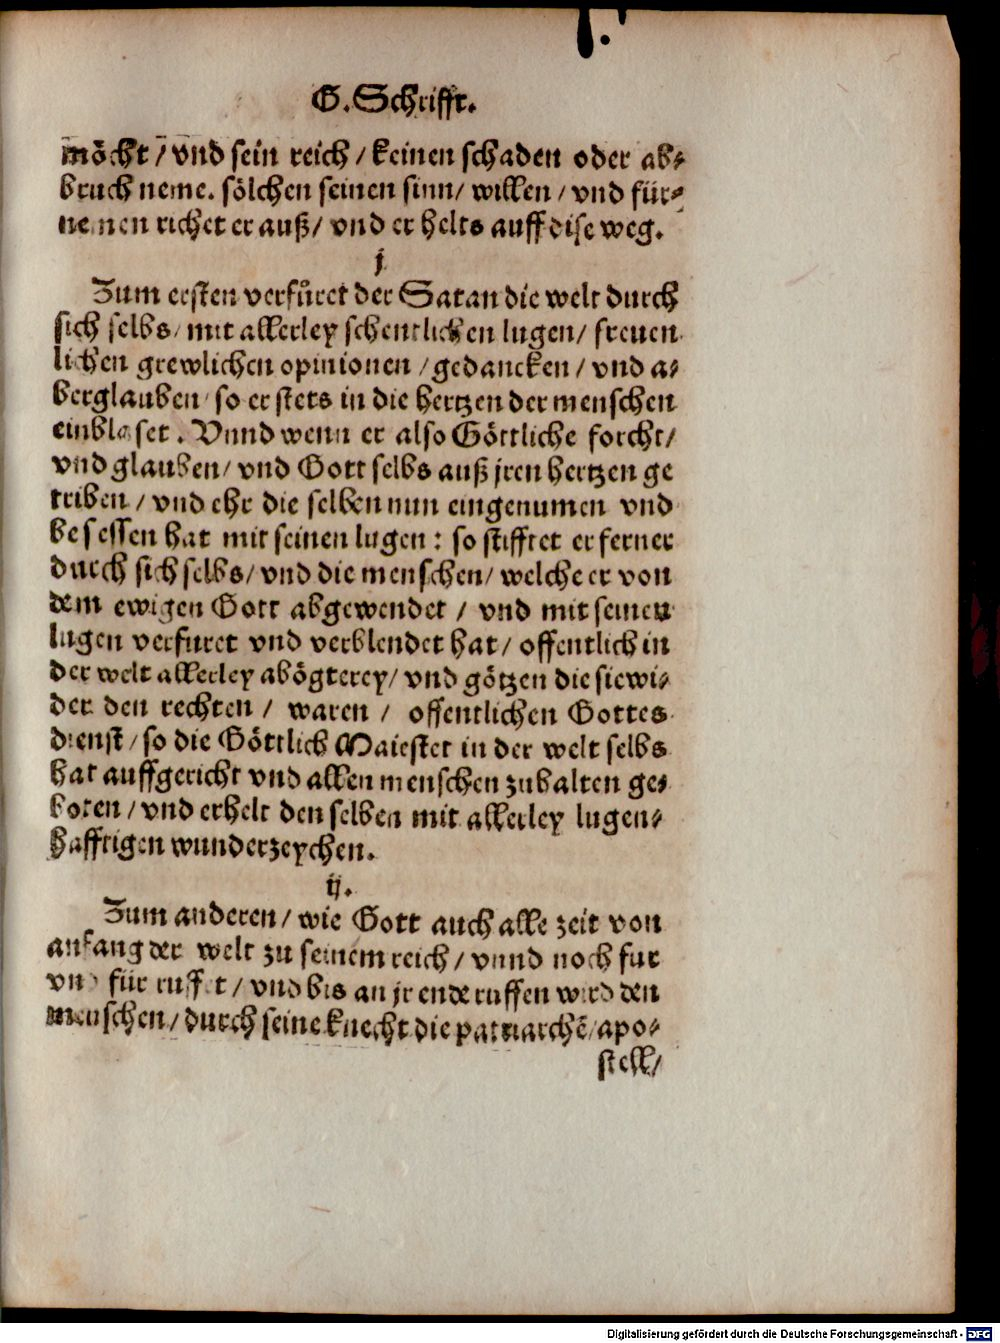 G. Schrifft.
möcht / vnd sein reich / keinen schaden oder ab⸗
bruch neme. sölchen seinen sinn / willen / vnd für⸗
nemen richet er auß / vnd erhelts auff dise weg.
j
Zum ersten verfůret der Satan die welt durch
sich selbs / mit allerley schentlichen lugen / freuen
lichen grewlichen opinionen / gedancken / vnd a⸗
berglauben / so er stets in die hertzen der menschen
einblaset. Vnnd wenn er also Göttliche forcht /
vnd glauben / vnd Gott selbs auß jren hertzen ge
triben / vnd ehr die selben nun eingenumen vnd
besessen hat mit seinen lugen : so stifftet er ferner
durch sich selbs / vnd die menschen / welche er von
dem ewigen Gott abgewendet / vnd mit seinen
lugen verfuret vnd verblendet hat / offentlich in
der welt allerley abögterey / vnd götzen die sie wi⸗
der den rechten / waren / offentlichen Gottes
dienst / so die Göttlich Maiestet in der welt selbs
hat auffgericht vnd allen menschen zuhalten ge⸗
boten / vnd erhelt den selben mit allerley lugen⸗
hafftigen wunderzeychen.
ij.
Zum anderen / wie Gott auch alle zeit von
anfang der welt zu seinem reich / vnnd noch fur
vnd für rufft / vnd bis an jr ende ruffen wird den
menschen / durch seine knecht die patriarchẽ / apo⸗
stell /
Digitalisierung gefördert durch die Deutsche Forschungsgemeinschaft - DFG